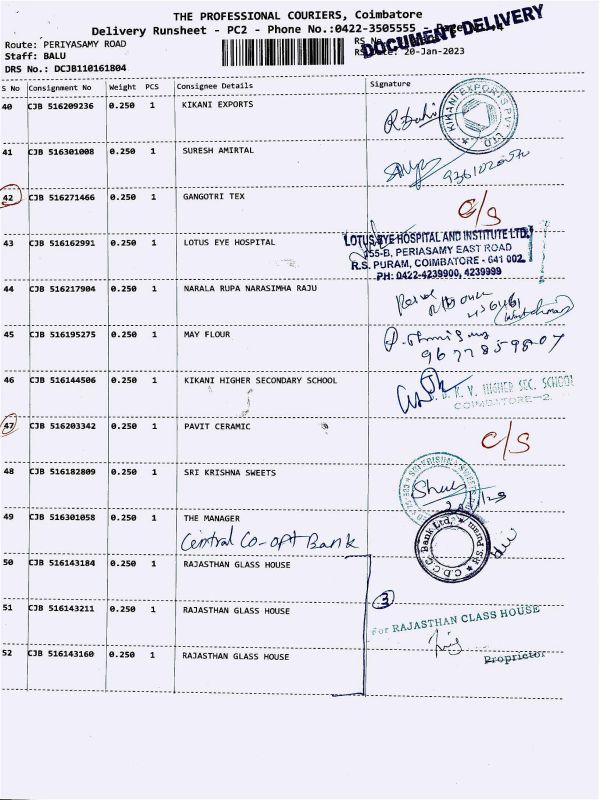 THE PROFESSIONAL COURIERS, Coimbatore
Delivery Runsheet - PC2 - Phone No.:0422-3505555 -
DOCUMENT DELIVERY
Route: PERIYASAMY ROAD
Staff: BALU
20-Jan-2023
DRS No.: DCJB110161804
S No Consignment No Weight PCS Consignee Details Signature
40 CJB 516209236 0.250 1 KIKANI EXPORTS
KIKANI EXPORTS PVT LTD.
41 CJB 516301008 0.250 1 SURESH AMIRTAL
42 CJB 516271466 0.250 1 GANGOTRI TEX C/S
43 CJB 516162991 0.250 1 LOTUS EYE HOSPITAL
LOTUS EYE HOSPITAL AND INSTITUTE LTD.
155-B, PERIASAMY EAST ROAD
R.S. PURAM, COIMBATORE - 641 002.
PH: 0422-4239900, 4239999
44 CJB 516217904 0.250 1 NARALA RUPA NARASIMHA RAJU
45 CJB 516195275 0.250 1 MAY FLOUR
9677859807
46 CJB 516144506 0.250 1 KIKANI HIGHER SECONDARY SCHOOL
K. V. HIGHER SEC. SCHOOL
COIMBATORE-2.
47 CJB 516203342 0.250 1 PAVIT CERAMIC C/S
48 CJB 516182809 0.250 1 SRI KRISHNA SWEETS
SRI KRISHNA SWEETS
49 CJB 516301058 0.250 1 THE MANAGER
Central Co-opt Bank
C.D.C.C. Bank Ltd.,
50 CJB 516143184 0.250 1 RAJASTHAN GLASS HOUSE
51 CJB 516143211 0.250 1 RAJASTHAN GLASS HOUSE
3
For RAJASTHAN GLASS HOUSE
52 CJB 516143160 0.250 1 RAJASTHAN GLASS HOUSE
Proprietor